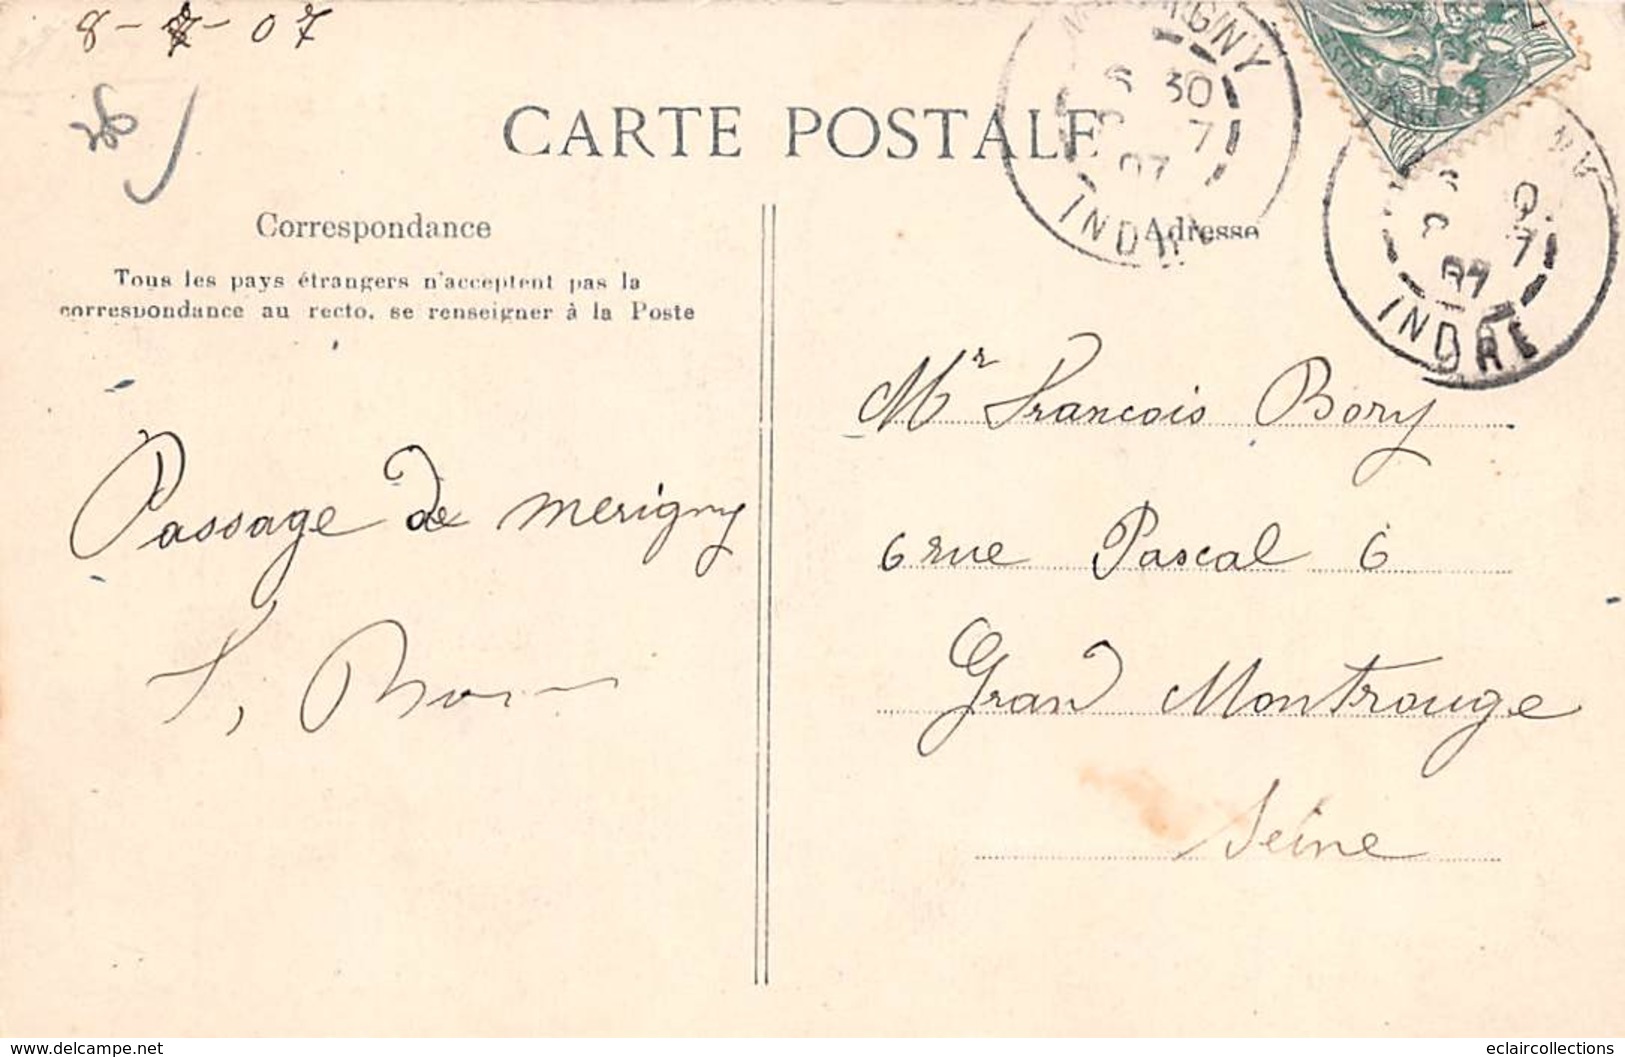 8-7-07
26
CARTE POSTALE
Correspondance
Tous les pays étrangers n'acceptent pas la
correspondance au recto, se renseigner à la Poste
Passage de merigny
Adresse
Mr Francois Bory
6 rue Pascal 6
Gran Montrouge
Seine
MERIGNY
30
7
07
INDRE
7
07
INDRE
www.delcampe.net
eclaircollections